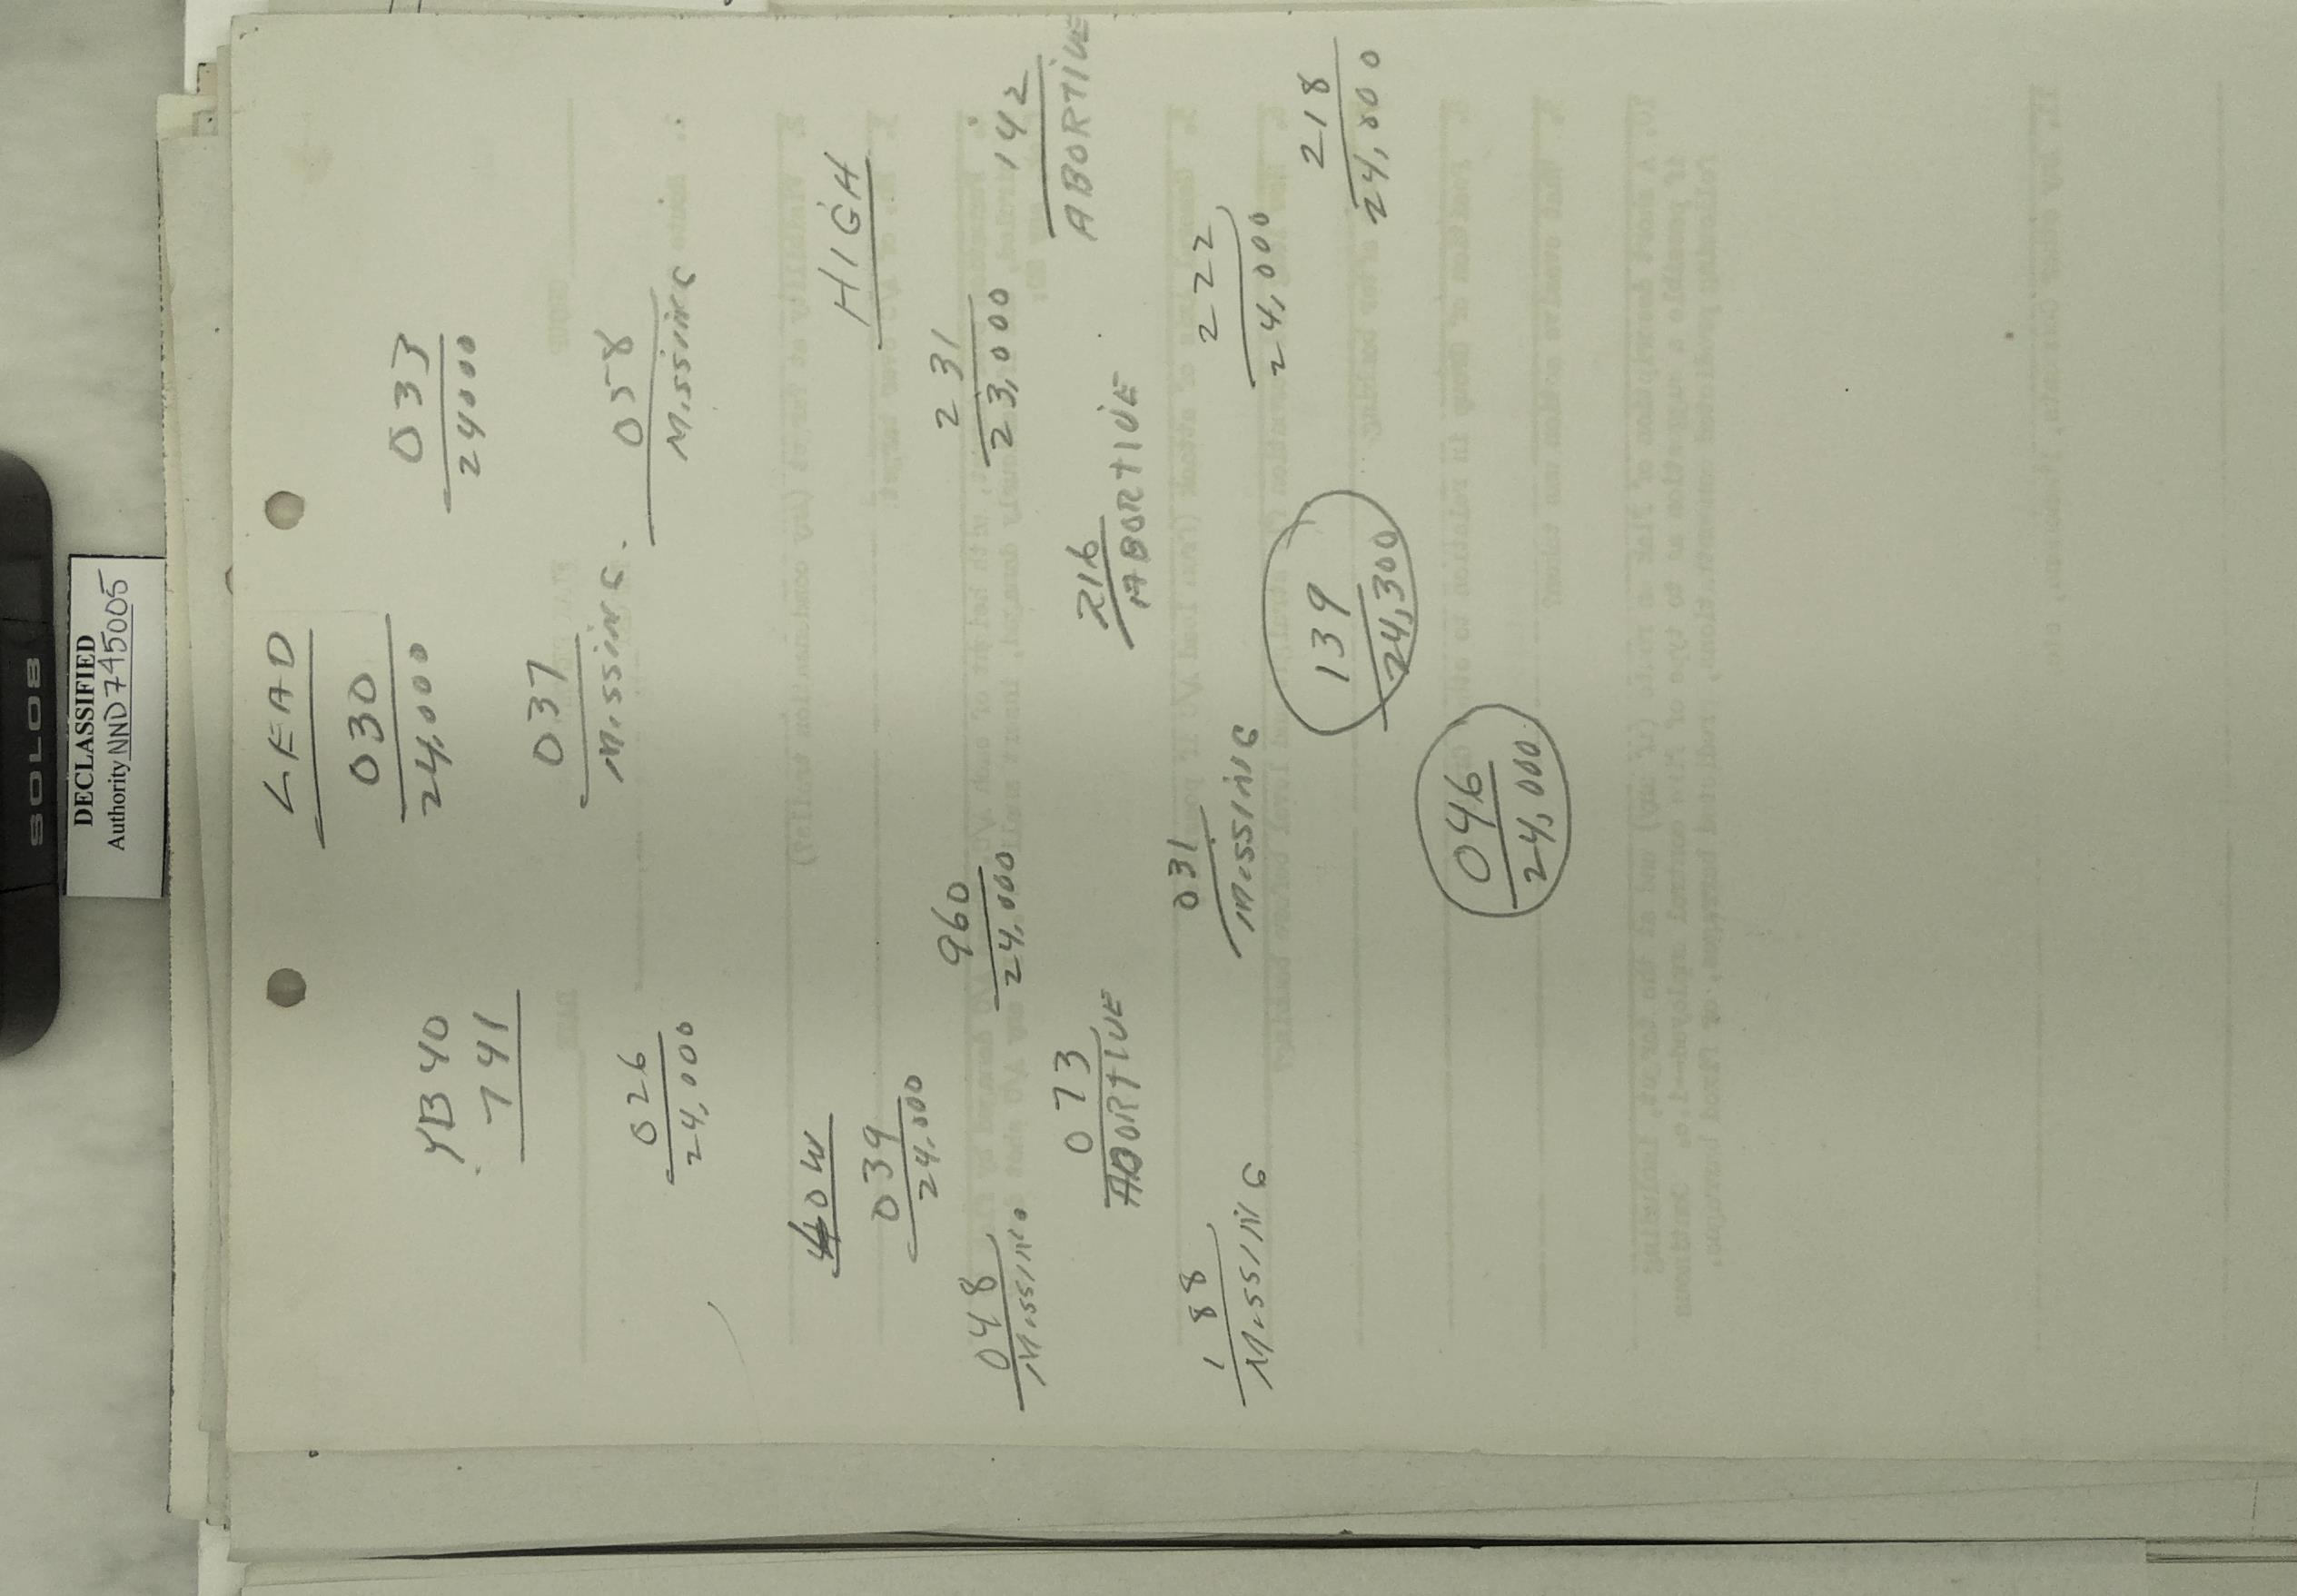 SOLO8
DECLASSIFIED
Authority NND 745005
LEAD
030
24,000
YB 40
741
033
24000
037
MISSING
026
24,000
058
MISSING
LOW
039
24,000
HIGH
048
MISSING
960
24,000
231
23,000
142
ABORTIVE
073
ABORTIVE
216
ABORTIVE
188
MISSING
031
MISSING
222
24,000
139
24,300
218
24,000
046
24,000